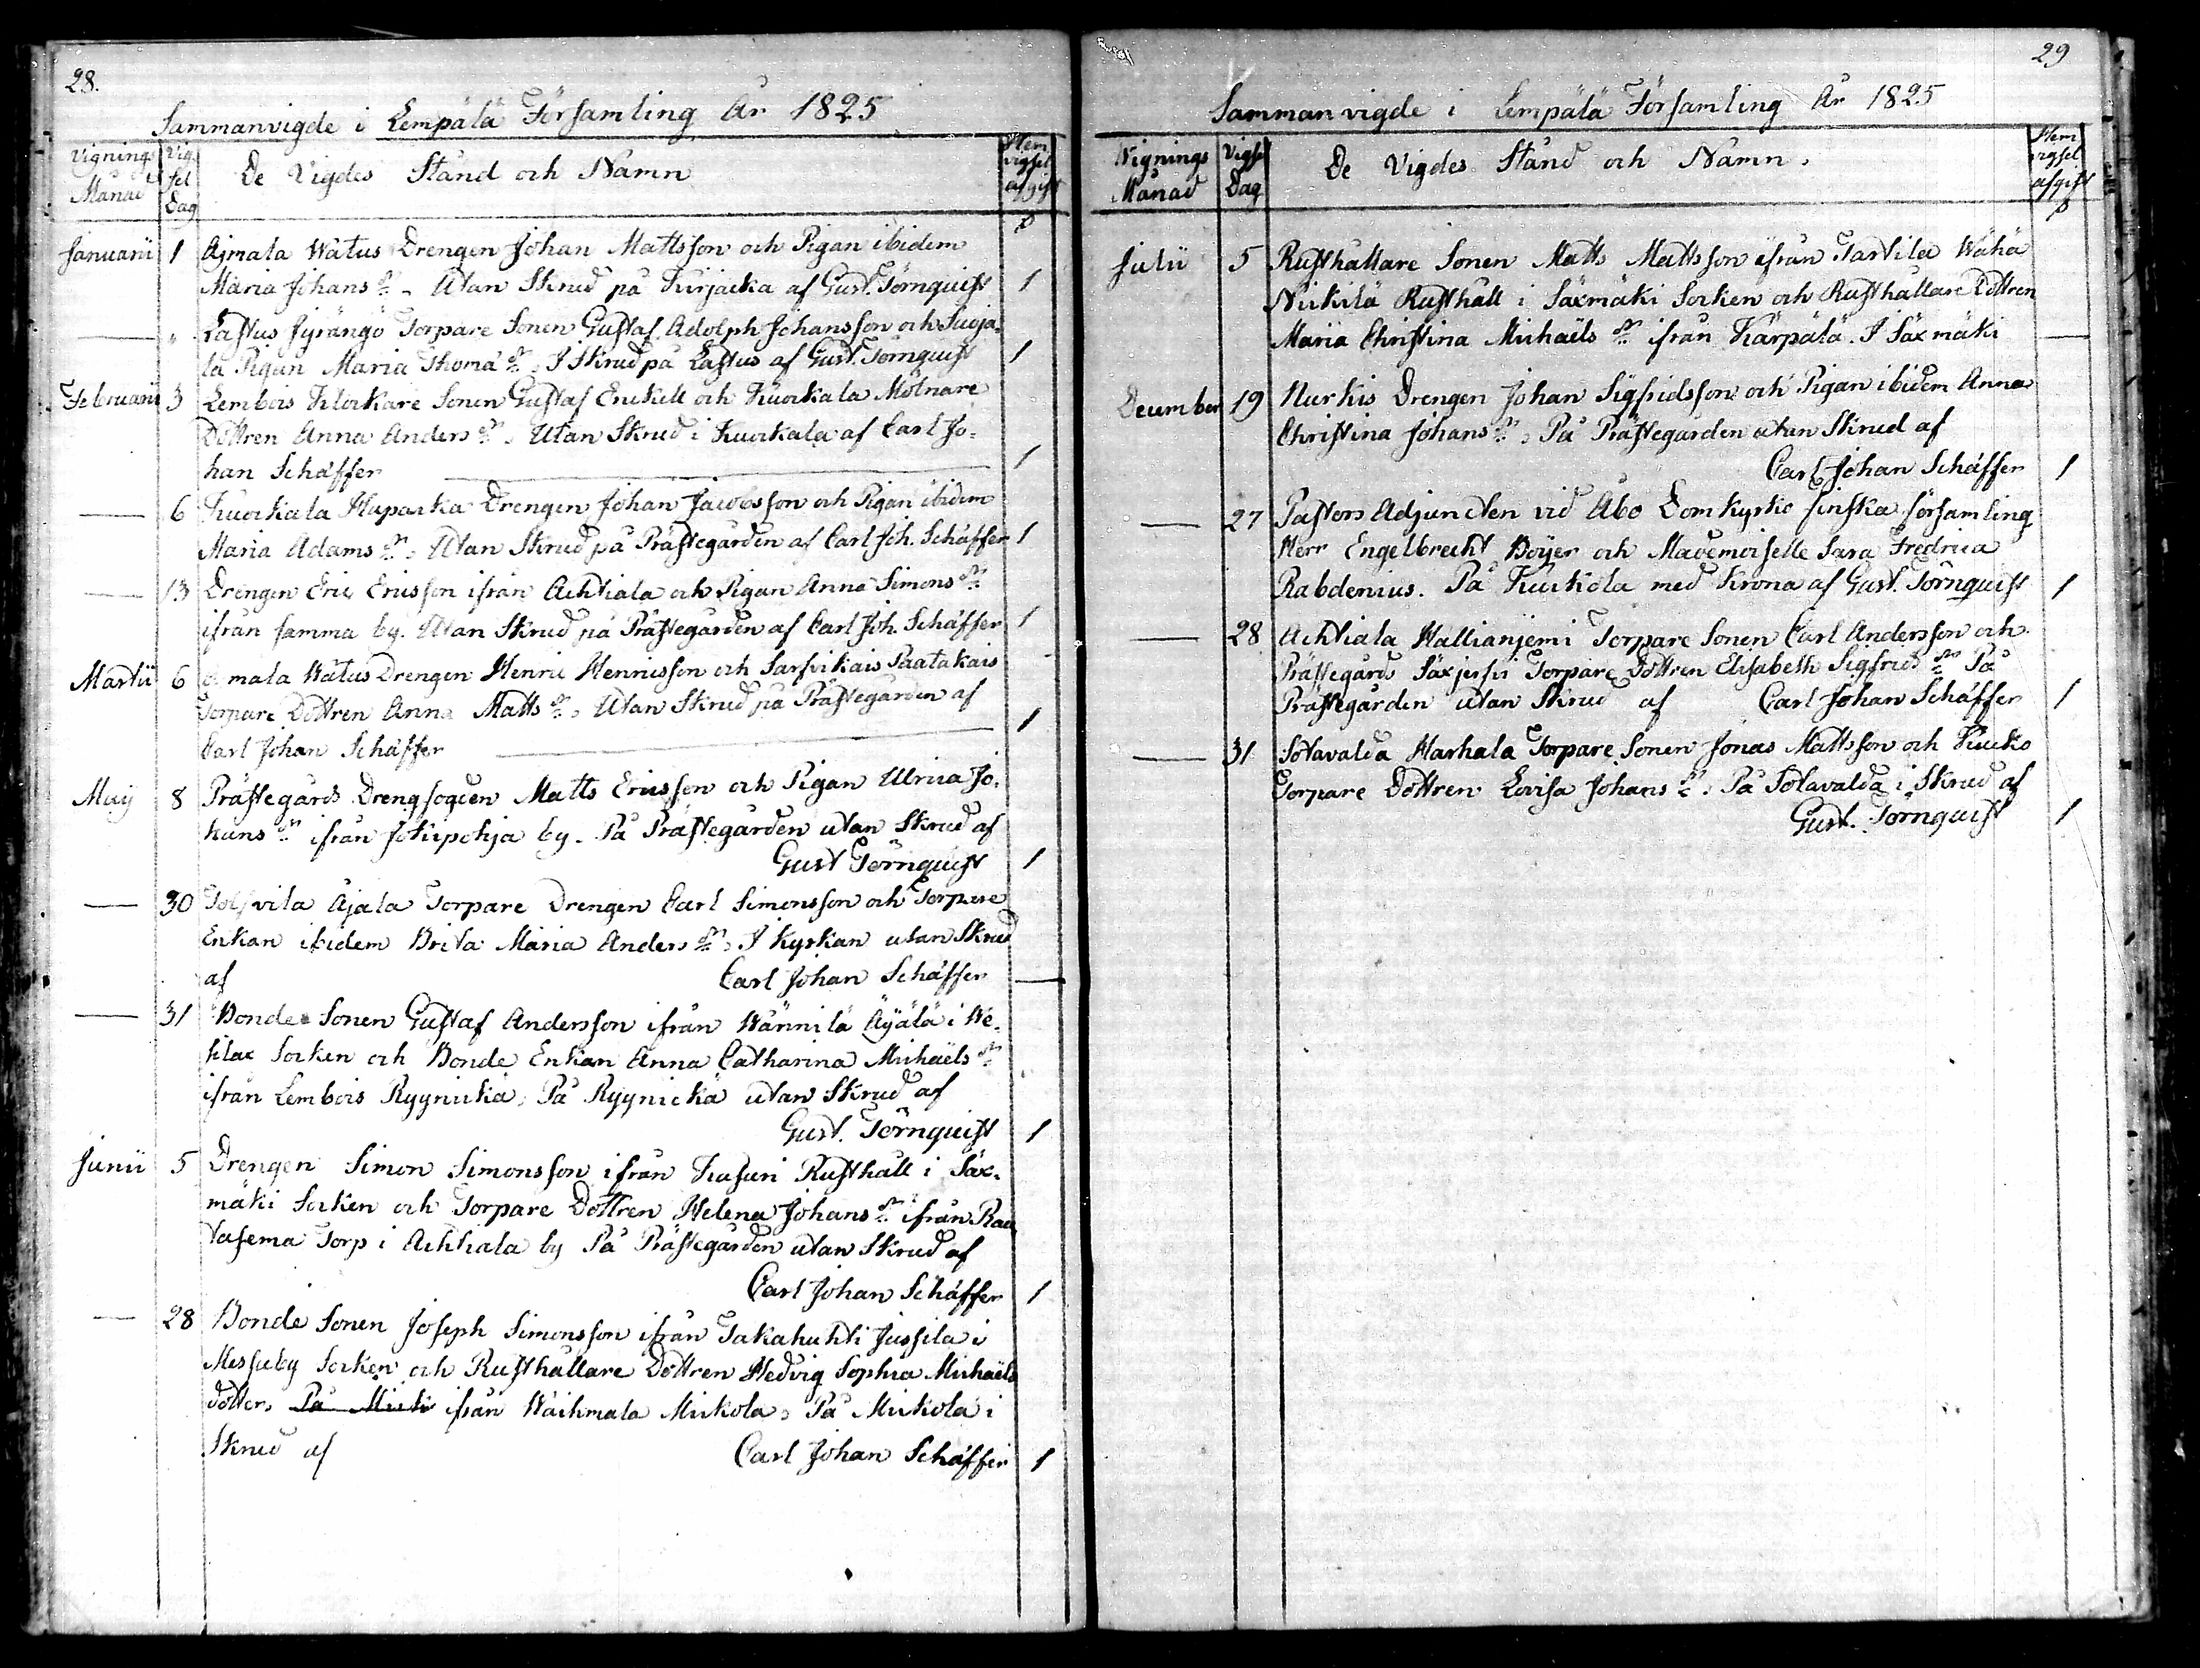 28.
Sammanvigde i Lempälä Församling År 1825
Vignings Månad
Vigsel Dag
De Vigdes Stånd och Namn
Hemvigsel afgift
Januarii 1 Ajmala Watus Drengen Johan Mattsson och Pigan ibidem
Maria Johans dr. Utan Skrud på Kurjacka af Gust. Törnquist 1
— " Lastus Jyrängö Torpare Sonen Gustaf Adolph Johansson och Suoja-
la Pigan Maria Thomæ dr. I Skrud på Lastus af Gust. Törnquist 1
Februarii 3 Lembois Klockare Sonen Gustaf Enckell och Kuockala Mölnare
Dottren Anna Anders dr. Utan Skrud i Kuockala af Carl Jo-
han Schäffer 1
— 6 Kuockala Huparka Drengen Johan Jacobsson och Pigan ibidem
Maria Adams dr. Utan Skrud på Prästegården af Carl Joh. Schäffer 1
— 13 Drengen Eric Ericsson ifrån Achtiala och Pigan Anna Simons dr.
ifrån samma by. Utan Skrud på Prästegården af Carl Joh. Schäffer 1
Martii 6 mala Watus Drengen Henric Henricsson och Sarfvikais Paatakais
Torpare Dottren Anna Matts dr. Utan Skrud på Prästegården af
Carl Johan Schäffer 1
Maij 8 Prästegårds Drengfogden Matts Ericsson och Pigan Ulrica Jo-
hans dr. ifrån Jokipohja by. På Prästegården utan Skrud af
Gust Törnquist 1
— 30 Tolfvila Äjälä Torpare Drengen Carl Simonsson och Torpare
Enkan ibidem Brita Maria Anders dr. I Kyrkan utan Skrud
af Carl Johan Schäffer —
— 31 Bonde Sonen Gustaf Andersson ifrån Wännilä Äyälä i We-
kilax Socken och Bonde Enkan Anna Catharina Michaëls dr.
ifrån Lembois Ryynickä, På Ryynickä utan Skrud af
Gust. Törnquist 1
Junii 5 Drengen Simon Simonsson ifrån Kusuri Rusthåll i Säx-
mäki Socken och Torpare Dottren Helena Johans dr. ifrån Rau-
tasema Torp i Achtiala by På Prästegården utan Skrud af
Carl Johan Schäffer 1
— 28 Bonde Sonen Joseph Simonsson ifrån Takahuhti Jussila i
Messuby Socken och Rusthållare Dottren Hedvig Sophia Michaëls
dotter, På Mick ifrån Waihmala Mickola, På Mickola i
Skrud af Carl Johan Schäffer 1
29
Sammanvigde i Lempälä Församling År 1825
Wignings Månad
Vigsel Dag
De Vigdes Stånd och Namn.
Hemvigsel afgift
Julii 5 Rusthållare Sonen Matts Mattsson ifrån Tartila Wähä
Nickilä Rusthåll i Säxmäki Socken och Rusthållare Dottren
Maria Christina Michaëls dr. ifrån Kärpälä. I Säxmäki —
December 19 Nurkis Drengen Johan Sigfridsson och Pigan ibidem Anna
Christina Johans dr. På Prästegården utan Skrud af
Carl Johan Schäffer 1
— 27 Pastors Adjuncten vid Åbo Domkyrko finska församling
Herr Engelbrecht Böyer och Mademoiselle Sara Fredrica
Rabdenius. På Kuckola med Krona af Gust. Törnquist 1
— 28 Achtiala Hallianjemi Torpare Sonen Carl Andersson och
Prästegårds Säxjerfvi Torpare Dottren Elisabeth Sigfrids dr. På
Prästegården utan Skrud af Carl Johan Schäffer 1
— 31 Sotavalda Harhala Torpare Sonen Jonas Mattsson och Kuckö
Torpare Dottren Lovisa Johans dr. På Sotavalda i Skrud af
Gust. Törnquist 1